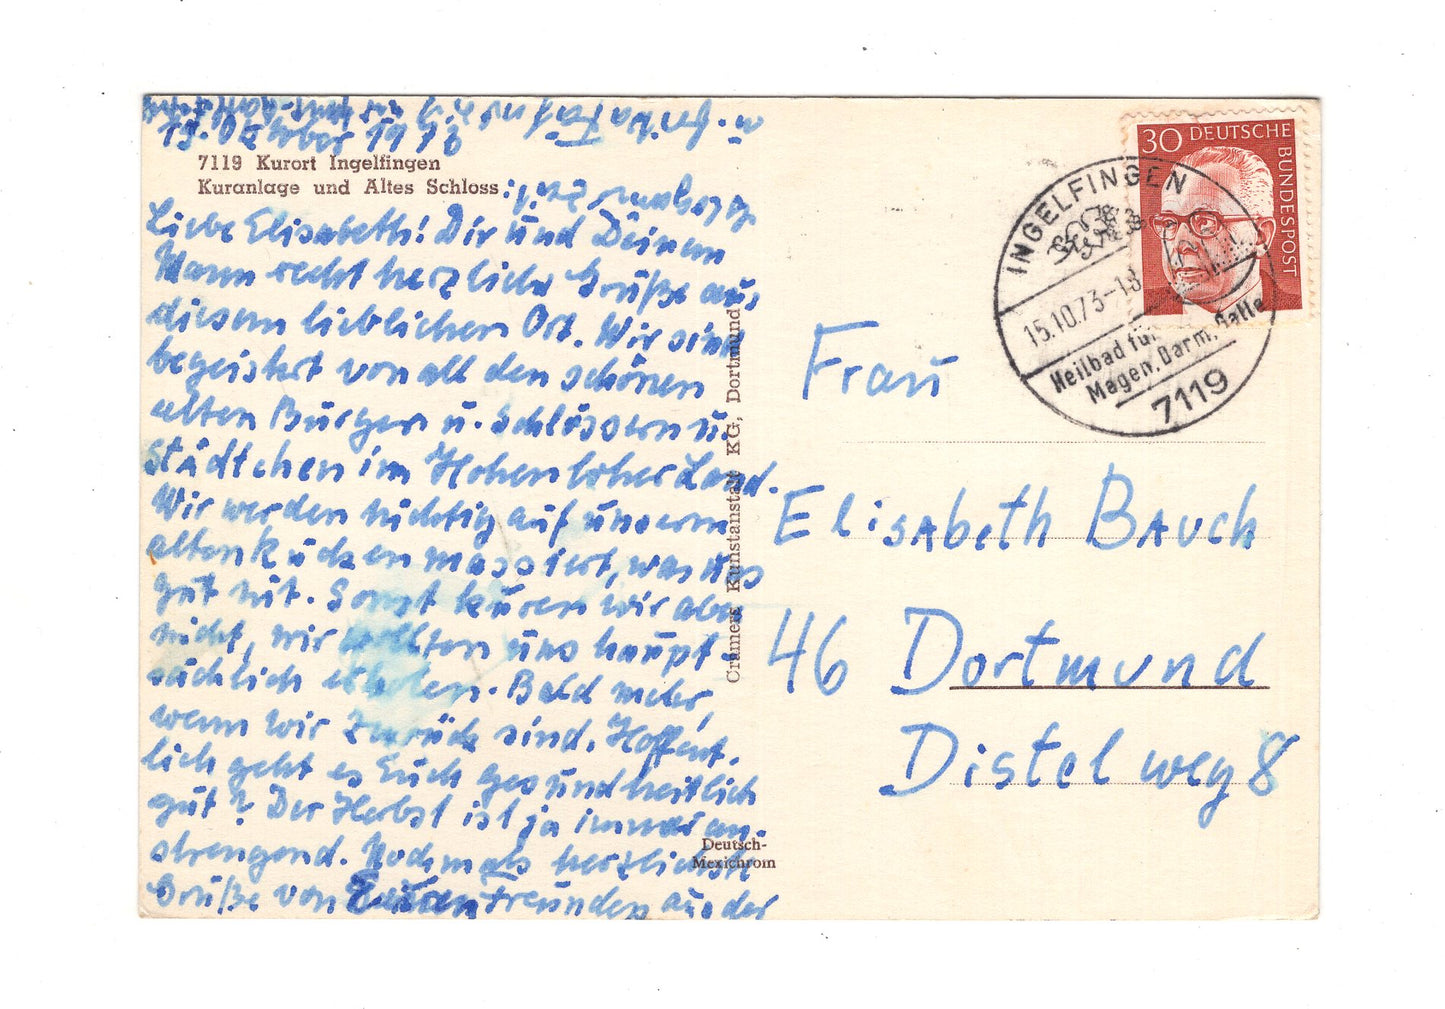 13. Oktober 1973
7119 Kurort Ingelfingen
Kuranlage und Altes Schloss
Liebe Elisabeth! Dir und Deinem
Mann recht herzliche Grüße aus
diesem lieblichen Ort. Wir sind
begeistert von all den schönen
alten Burgen u. Schlössern u.
Städtchen im Hohenloher Land.
Wir werden tüchtig auf unserm
alten Rücken massiert, was uns
gut tut. Sonst kuren wir aber
nicht, wir wollten uns haupt-
sächlich erholen. Bald mehr,
wenn wir zurück sind. Hoffent-
lich geht es Euch gesundheitlich
gut? Der Herbst ist ja immer an-
strengend. Nochmals herzlichste
Grüße von Euren Freunden aus der
Cramers Kunstanstalt KG, Dortmund
Deutsch-
Mexichrom
30 DEUTSCHE
BUNDESPOST
INGELFINGEN
15.10.73-18
Heilbad für
Magen, Darm, Galle
7119
Frau
Elisabeth Bauch
46 Dortmund
Distelweg 8